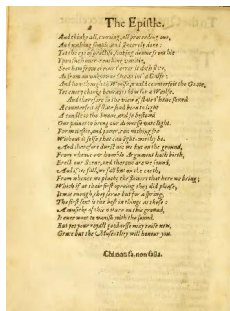 The Epistle.
And thinke all, cunning, all proceeding one,
And nothing simple, and sincerely done:
Yet the eye of practise, looking downe from hie
Upon such over-reaching vanitie,
Sees how from error t' error it doth flote,
As from an unknowne Ocean into a Gulfe:
And how though th' Woolfe, would counterfeit the Goate,
Yet every chinke bewrayes him for a Woolfe.
And therefore in the view of state t' have show'd
A counterfeit of state, had beene to light
A candle to the Sunne, and so bestow'd
Our paines to bring our dimnesse unto light.
For majestie, and power, can nothing see
Without it selfe, that can sight-worthy be.
And therefore durst not we but on the ground,
From whence our humble Argument hath birth,
Erect our Scene, and thereon are we found,
And if we fall, we fall but on the earth,
From whence we pluckt the flowers that here we bring;
Which if at their first opening they did please,
It was enough, they serve but for a spring,
The first sent is the best in things as these:
A musicke of this nature on the ground,
Is ever wont to vanish with the sound.
But yet your royall goodnesse may raise new,
Grace but the Muses they will honour you.
Chi non fa, non falla.